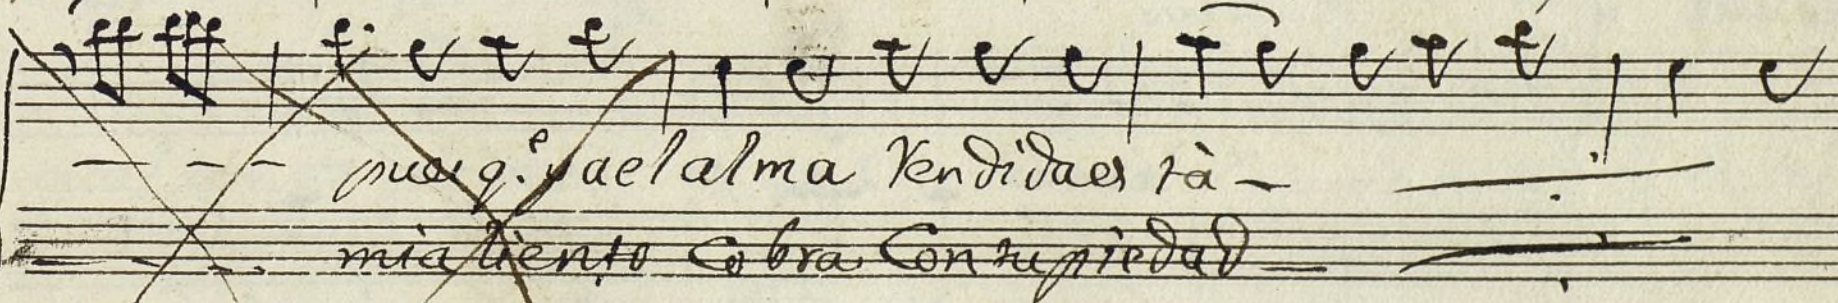 pues q.e ya el alma Rendida es tà
mi aliento Cobra Con tu piedad